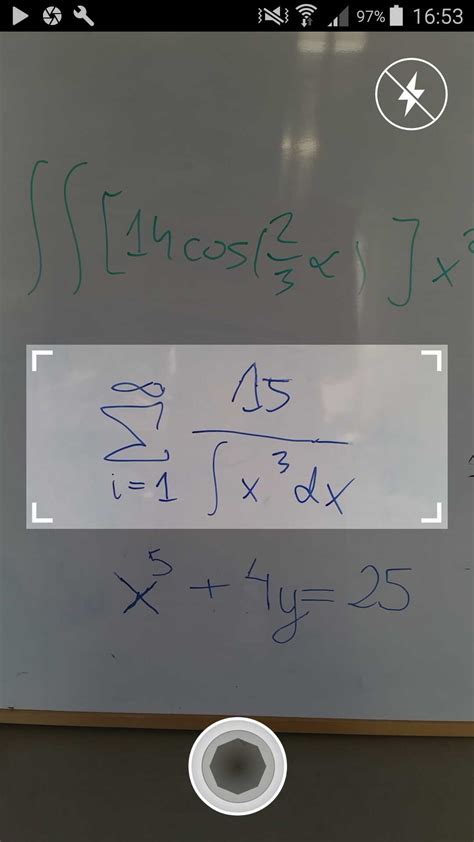 97% 16:53
∫∫[14cos(2/3 α)]x
∞
∑ 15/∫x³dx
i=1
x⁵+4y=25